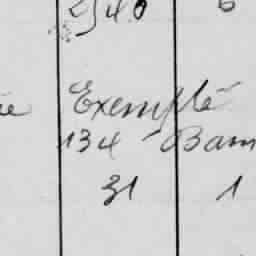 940 6
Exempté
134 Bam
31 1